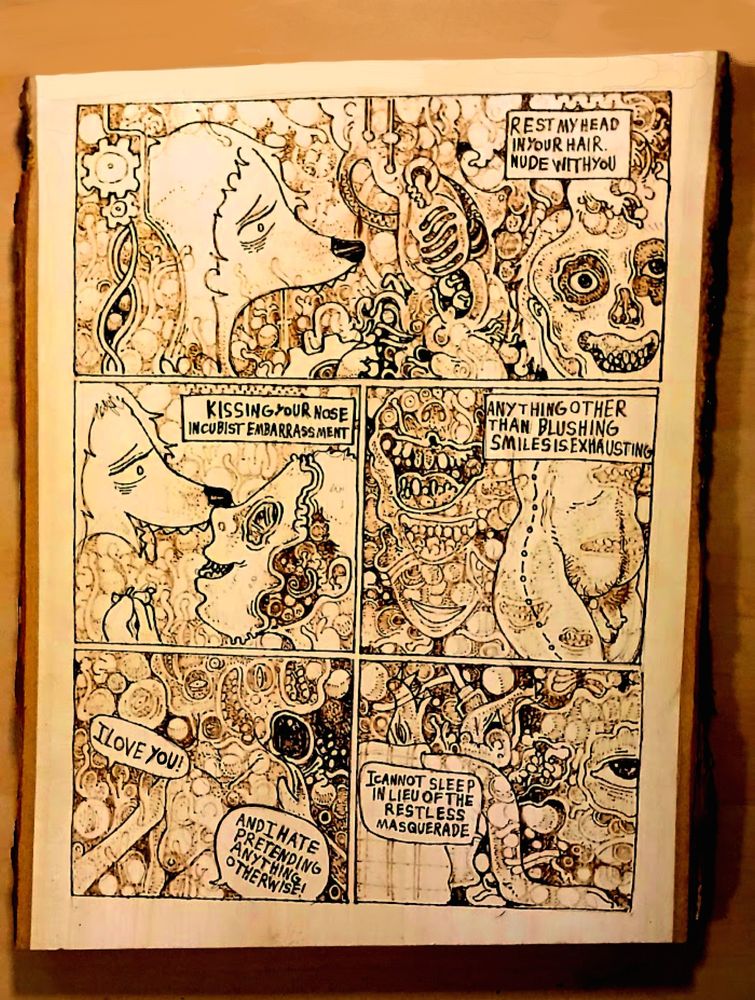 REST MY HEAD
IN YOUR HAIR.
NUDE WITH YOU
KISSING YOUR NOSE
IN CUBIST EMBARRASSMENT
ANYTHING OTHER
THAN BLUSHING
SMILES IS EXHAUSTING
I LOVE YOU!
AND I HATE
PRETENDING
ANYTHING
OTHERWISE!
I CANNOT SLEEP
IN LIEU OF THE
RESTLESS
MASQUERADE